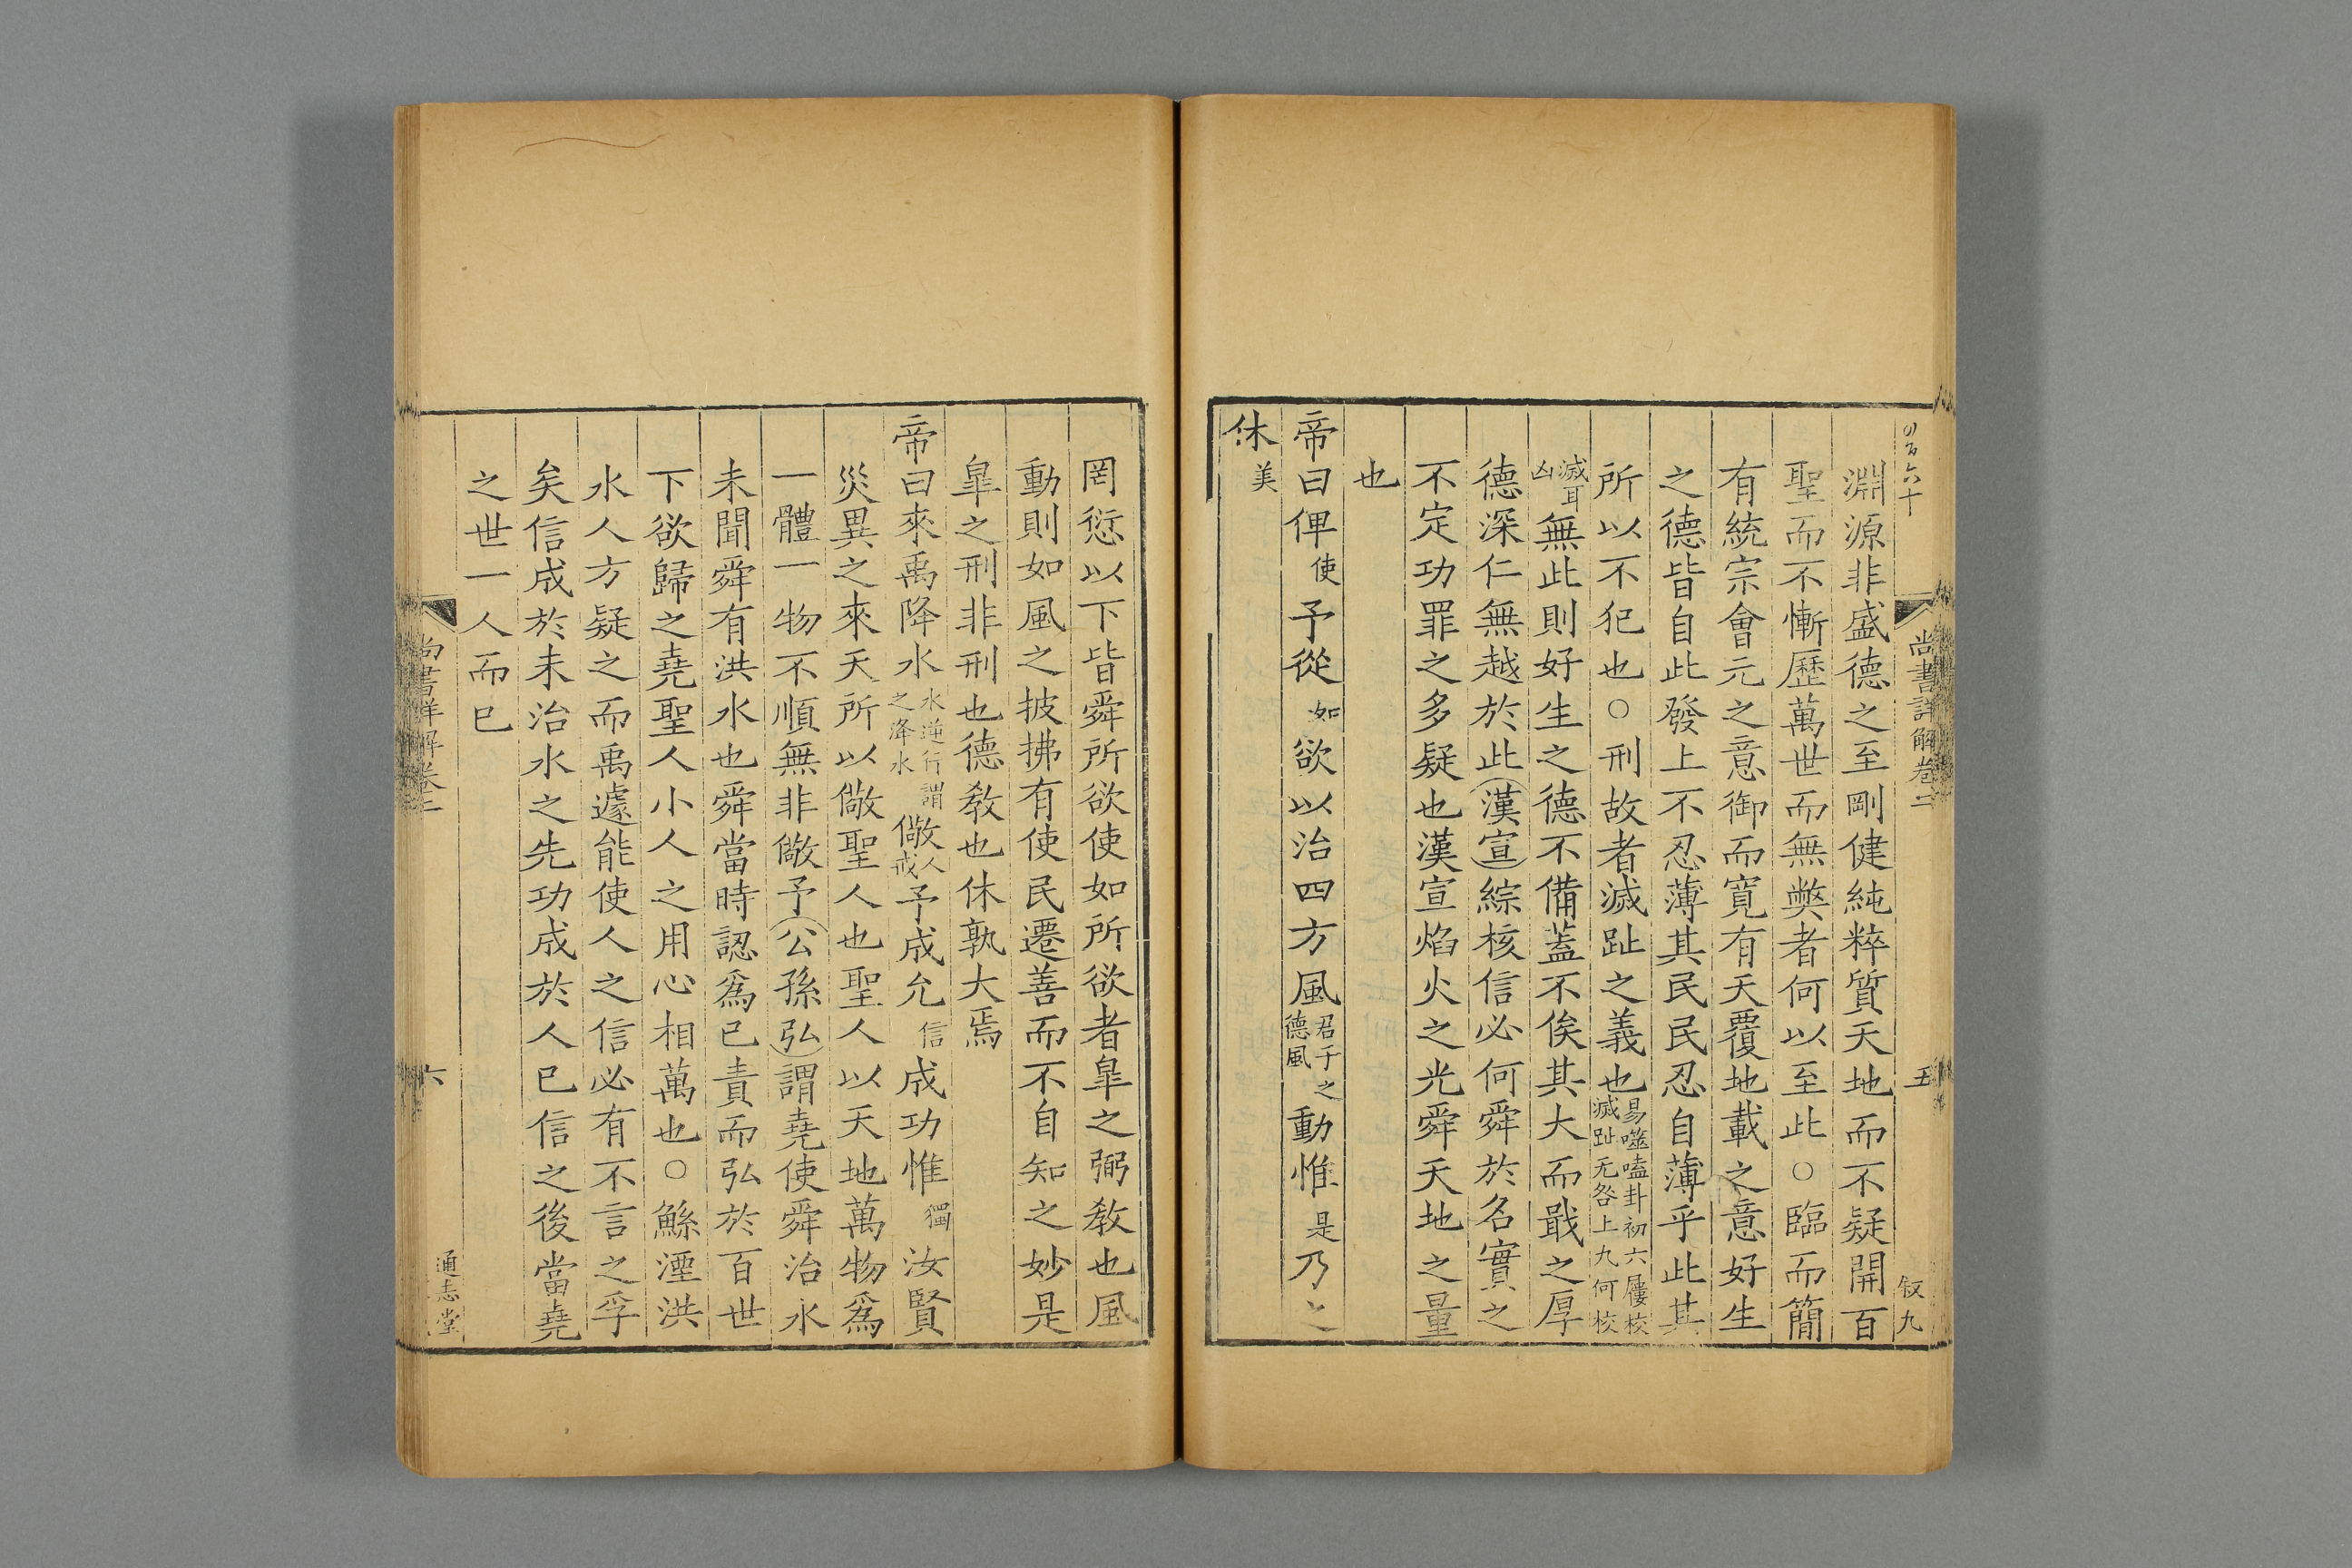 尚書詳解卷二 五
淵源非盛德之至剛健純粹質天地而不疑開百
聖而不慚歷萬世而無獘者何以至此○臨而簡
有統宗會元之意御而寬有天覆地載之意好生
之德皆自此發上不忍薄其民民忍自薄乎此其
所以不犯也○刑故者滅趾之義也易噬嗑卦初六屨校滅趾无咎上九何校
滅耳凶無此則好生之德不備蓋不俟其大而戢之厚
德深仁無越於此漢宣綜核信必何舜於名實之
不定功罪之多疑也漢宣焰火之光舜天地之量
也
帝曰俾使予從如欲以治四方風君子之德風動惟是乃之
休美
罔愆以下皆舜所欲使如所欲者臯之弼教也風
動則如風之披拂有使民遷善而不自知之妙是
臯之刑非刑也德教也休孰大焉
帝曰來禹降水水逆行謂之洚水儆人戒予成允信成功惟獨汝賢
災異之來天所以儆聖人也聖人以天地萬物爲
一體一物不順無非儆予公孫弘謂堯使舜治水
未聞舜有洪水也舜當時認爲已責而弘於百世
下欲歸之堯聖人小人之用心相萬也○鯀湮洪
水人方疑之而禹遽能使人之信必有不言之孚
矣信成於未治水之先功成於人已信之後當堯
之世一人而已
尚書詳解卷二 六 通志堂